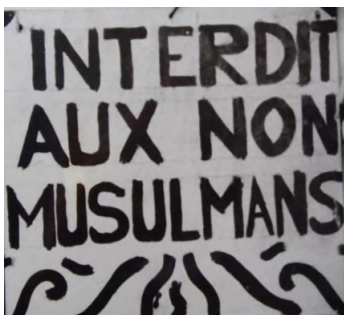 INTERDIT
AUX NON
MUSULMANS